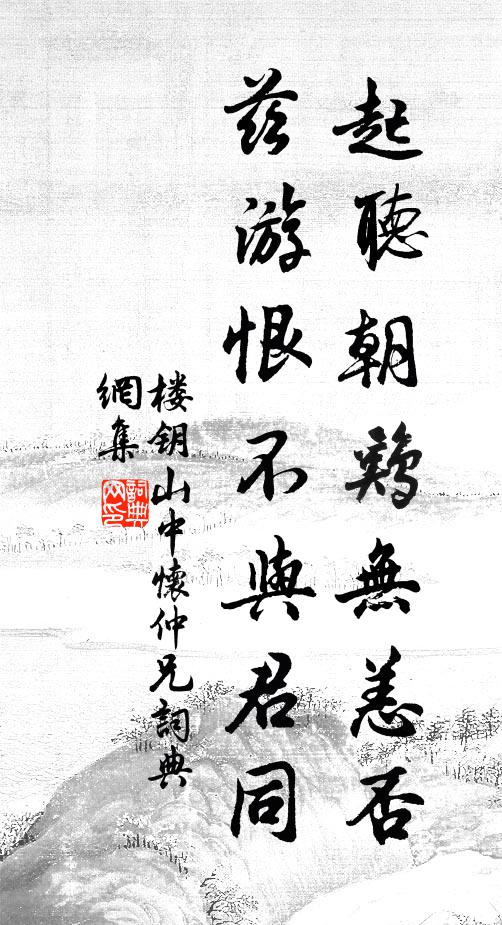 起聽朝鷄無恙否
茲游恨不與君同
楼钥山中懷仲兄詞典
網集
詞典
网印